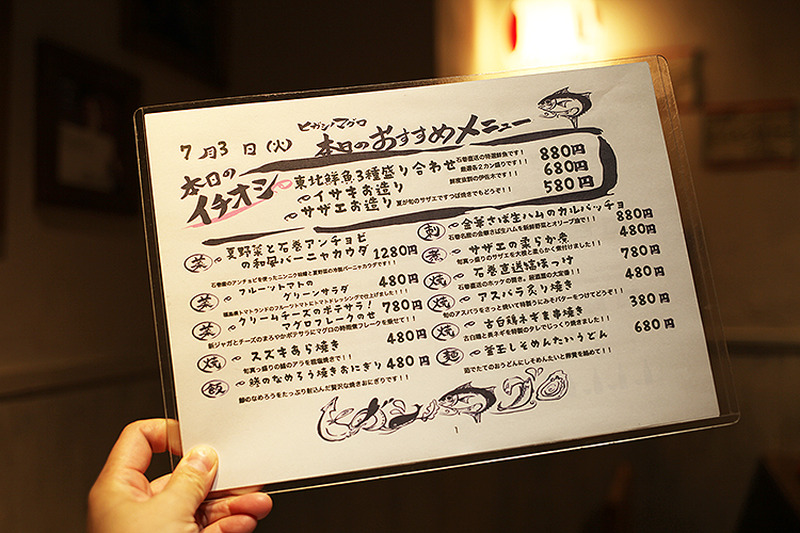 ヒガシノマグロ
7月3日(火) 本日のおすすめメニュー
本日のイチオシ
東北鮮魚3種盛り合わせ 石巻直送の特選鮮魚です!! 厳選各2カン盛りです!! 880円
イサキお造り 鮮度抜群の伊佐木です!! 680円
サザエお造り 夏が旬のサザエですつぼ焼きでもどうぞ!! 580円
菜 夏野菜と石巻アンチョビの和風バーニャカウダ 1280円
石巻産のアンチョビを使ったニンニク味噌と夏野菜の冷製バーニャカウダです!!
菜 フルーツトマトのグリーンサラダ 480円
福島県トマトランドのフルーツトマトにトマトドレッシングで仕上ました!!!
菜 クリームチーズのポテサラ!マグロフレークのせ 780円
新ジャガとチーズのまろやかポテサラにマグロの時雨煮フレークを乗せて!!
焼 スズキあら焼き 480円
旬真っ盛りの鱸のアラを粗塩焼きで!!
飯 鯵のなめろう焼きおにぎり 480円
鯵のなめろうをたっぷり射込んだ贅沢な焼きおにぎりです!!
刺 金華さば生ハムのカルパッチョ 880円
石巻名産の金華さば生ハムを新鮮野菜とオリーブ油で!!
煮 サザエの柔らか煮 480円
旬真っ盛りのサザエを大根と柔らかく煮付けました!!
焼 石巻直送縞ほっけ 780円
石巻直送のホッケの開き。居酒屋の大定番!!
焼 アスパラ炙り焼き 480円
旬のアスパラをさっと焼いて特製うにみそバターをつけてどうぞ!!
焼 古白鶏ネギま串焼き 380円
古白鶏と長ネギを特製のタレでじっくり焼きました!!
麺 釜玉しそめんたいうどん 680円
茹でたてのおうどんにしそめんたいと卵黄を絡めて!!
ヒガシノマグロ
1